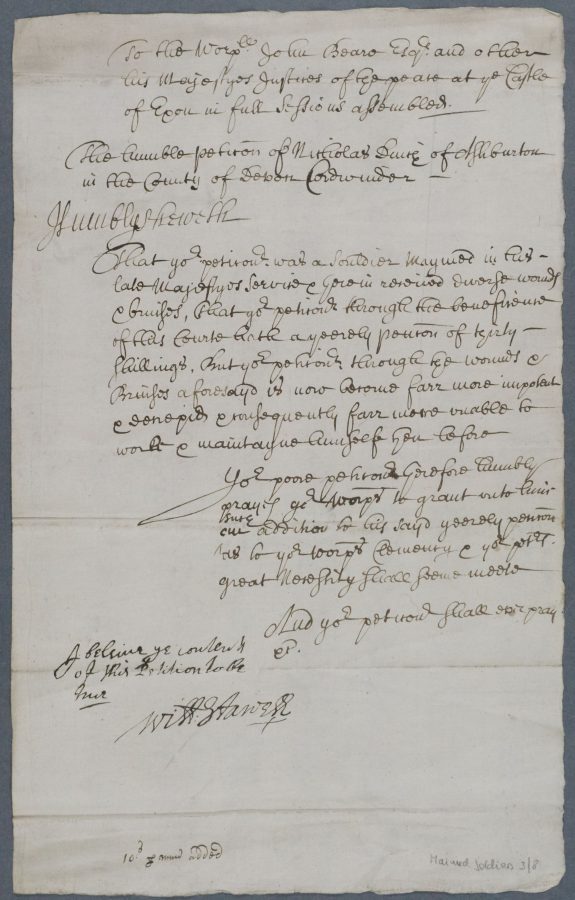 To the Worp:ll John Beare Esqr: and other
his Majestyes Justices of the peace at ye Castle
of Exon in full Sessions assembled.
The humble peticon of Nicholas of Ashburton
in the County of Devon Cordwinder
Humbly Sheweth
That yor: peticonr: was a Souldier Maymed in his
late Majestyes Service & therein received diverse wounds
& bruises, That yor: peticonr through the beneficence
of this Courte hath a yeerely pencon of thirty
shillings, But yor: peticonr: through the wounds &
Bruises aforesayd is now become farr more impotent
& decrepid & consequently farr more unable to
work & maintayne himselfe then before
Yor: poore peticonr therefore humbly
prayeth yor: worps to grant unto him
such
addition to his sayd yeerely pencon
as to yor: worps Clemency & yor: petrs:
great Necessity shall seeme meete
And yor: peticonr: shall ever pray
&c.
I beleive ye contents
of this Petition to be
true
Will: Stawell
10s p annu added
Maimed Soldiers 3/8